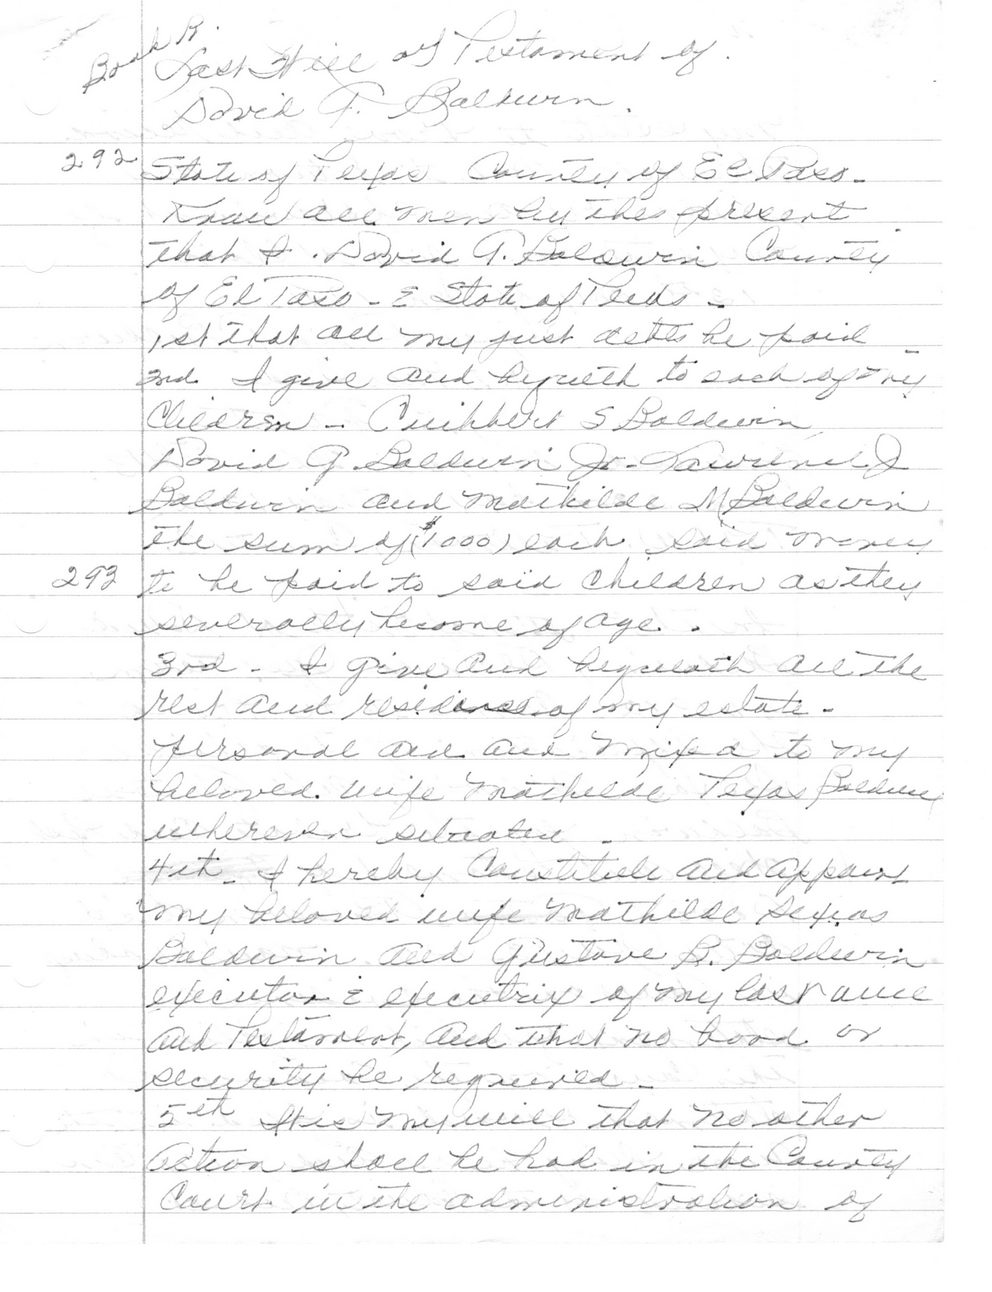 Book R.
Last Will of Testament of.
David G. Baldwin.
292 State of Texas County of El Paso-
Know all men by thes present
that I. David G. Baldwin County
of El Paso - & State of Texas -
1st that all my just debts be paid -
2nd I give and byueth to each of my
Children - Cuthbert S Baldwin
David G Baldwin Jr - Lawrence J
Baldwin and Mathilde M Baldwin
the sum of ($1000) each said money
293 to be paid to said children as they
severally become of age .
3rd - I give and byueath all the
rest and of my estate -
personal and mixed to my
beloved wife Mathilde Texas Baldwin
wherever situated -
4th - I hereby Constitute and appoint
my beloved wife Mathilde
Baldwin and Gustave B. Baldwin
executor & executrix of my last
and Testament, and that no bond or
security be required -
5th It is my will that no other
Action shall be had in the County
Court in the administration of